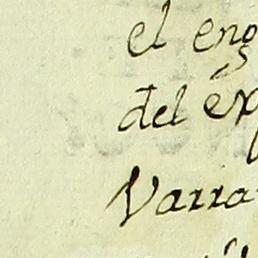 el eng
del exp
Varra